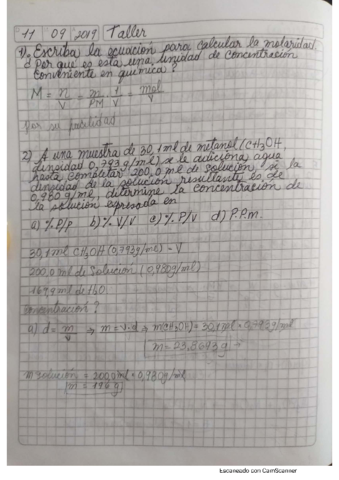 11 09 2019 Taller
1) Escriba la ecuación para calcular la molaridad.
¿Por que es esta una unidad de concentración
conveniente en química?
M = n/V = m/PM · 1/V = mol/V
Por su facilidad
2) A una muestra de 30,1 ml de metanol (CH3OH,
densidad 0,793 g/ml) se le adiciona agua
hasta completar 200,0 ml de solución, si la
densidad de la solución resultante es de
0,980 g/ml, determine la concentración de
la solución expresada en
a) %P/p b) %V/V c) %P/v d) P.P.m.
30,1 ml CH3OH (0,793 g/ml) = V
200,0 ml de Solución (0,980 g/ml)
169,9 ml de H2O
concentración?
a) d = m/v → m = v·d → m CH3OH = 30,1 ml · 0,793 g/ml
m = 23,8693 g
m solución = 200,0 ml · 0,980 g/ml
m = 196 g
Escaneado con CamScanner